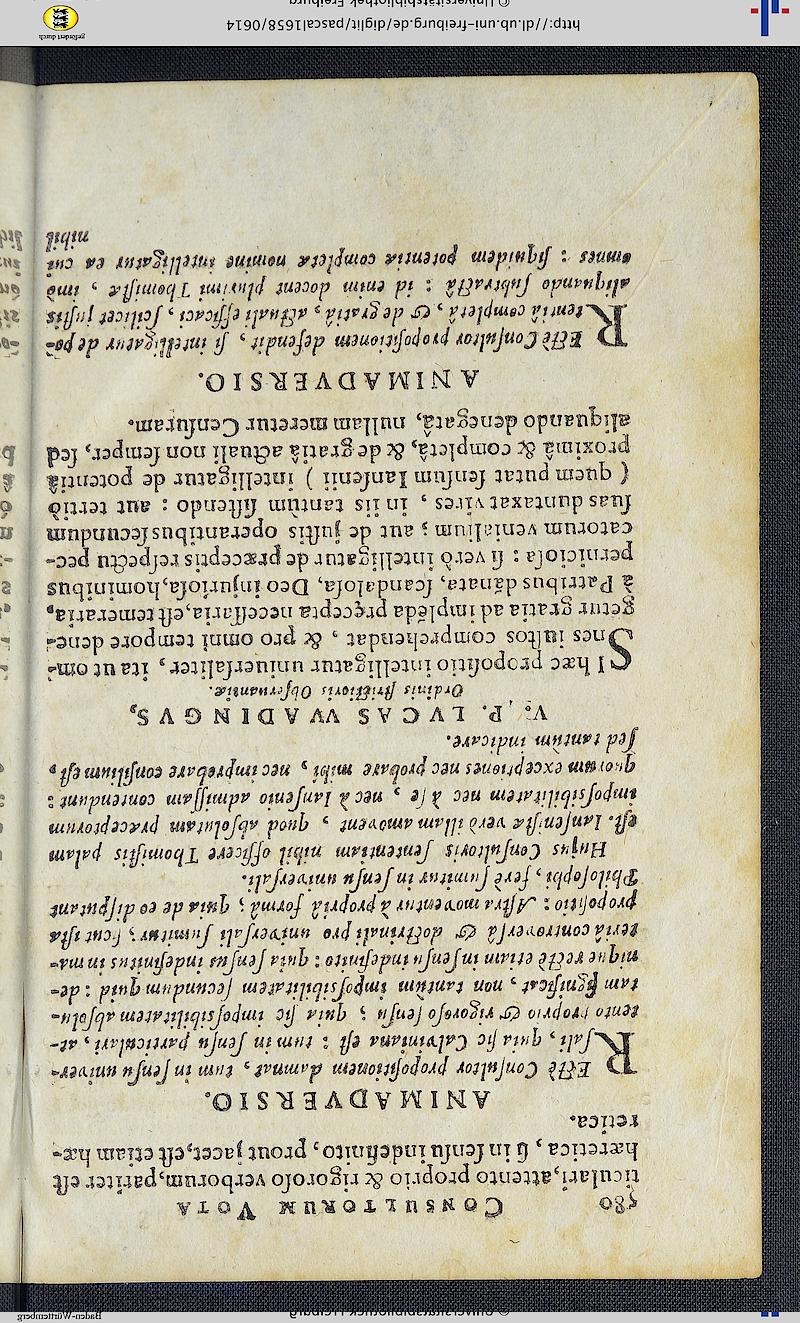 580 CONSULTORUM VOTA
ticulari, attento proprio & rigoroſo verborum, pariter eſt
hæretica, ſi in ſenſu indefinito, prout jacet, eſt etiam hæ-
retica.
ANIMADVERSIO.
REctè Conſultor propoſitionem damnat, tum in ſenſu univer-
ſali, quia ſic Calviniana eſt : tum in ſenſu particulari, at-
tento proprio & rigoroſo ſenſu ; quia ſic impoſsibilitatem abſolu-
tam ſignificat, non tantùm impoſsibilitatem ſecundum quid : de-
nique rectè etiam in ſenſu indefinito : quia ſenſus indefinitus in ma-
teriâ controverſâ & doctrinali pro univerſali ſumitur, ſicut iſta
propoſitio : Aſtra moventur à propriâ formâ ; quia de eo diſputant
Philoſophi, ferè ſumitur in ſenſu univerſali.
Hujus Conſultoris ſententiam nihil officere Thomiſtis palam
eſt. Ianſeniſtæ verò illam amovent, quod abſolutam præceptorum
impoſsibilitatem nec à ſe, nec à Ianſenio admiſſam contendunt :
quorum exceptiones nec probare mihi, nec improbare conſilium eſt,
ſed tantùm indicare.
V. P. LVCAS VVADINGVS,
Ordinis ſtrictioris Obſervantiæ.
SI hæc propoſitio intelligatur uniuerſaliter, ita ut om-
nes iuſtos comprehendat, & pro omni tempore dene-
getur gratia ad implẽda pręcepta neceſſaria, eſt temeraria,
à Patribus dãnata, ſcandaloſa, Deo injurioſa, hominibus
pernicioſa : ſi verò intelligatur de præceptis reſpectu pec-
catorum venialium ; aut de juſtis operantibus ſecundum
ſuas duntaxat vires, in iis tantùm ſiſtendo : aut tertiò
( quem putat ſenſum Ianſenii ) intelligatur de potentiâ
proximâ & completâ, & de gratiâ actuali non ſemper, ſed
aliquando denegatâ, nullam meretur Cenſuram.
ANIMADVERSIO.
REctè Conſultor propoſitionem defendit, ſi intelligatur de po-
tentiâ completâ, & de gratiâ, actuali efficaci, ſcilicet juſtis
aliquando ſubtractâ : id enim docent plurimi Thomiſtæ, imò
omnes : ſiquidem potentiæ completæ nomine intelligatur ea cui
nihil
http://dl.ub.uni-freiburg.de/diglit/pascal1658/0614
© Universitätsbibliothek Freiburg
gefördert durch
Baden-Württemberg